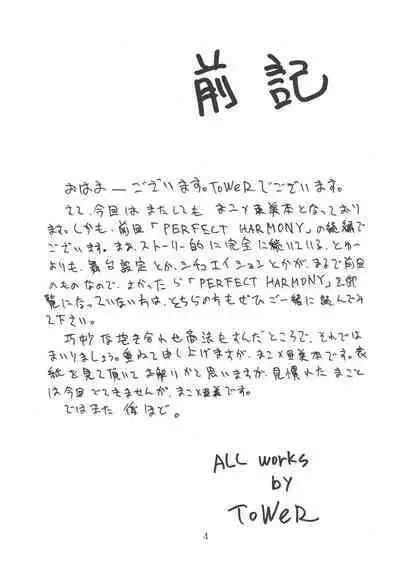 前記
おはよーございます。ToWeRでございます。
さて、今回はまたしても まこ×亜美本となっており
ます。しかも、前回「PERFECT HARMONY」の続編で
ございます。まあ、ストーリー的に完全に続いている、とゆー
よりも、舞台設定とか、シチュエイションとかが、まるで前回
のものなので、よかったら「PERFECT HARMONY」を御
覧になっていない方は、どちらの方もぜひご一緒に読んでみ
て下さい。
巧妙な抱き合わせ商法もすんだところで、それでは
まいりましょう。重ねて申し上げますが、まこ×亜美本です。表
紙を見て頂いてお解りかと思いますが、見慣れたまこと
は今回でてきませんが、まこ×亜美です。
ではまた 後ほど。
ALL works
by
ToWeR
4